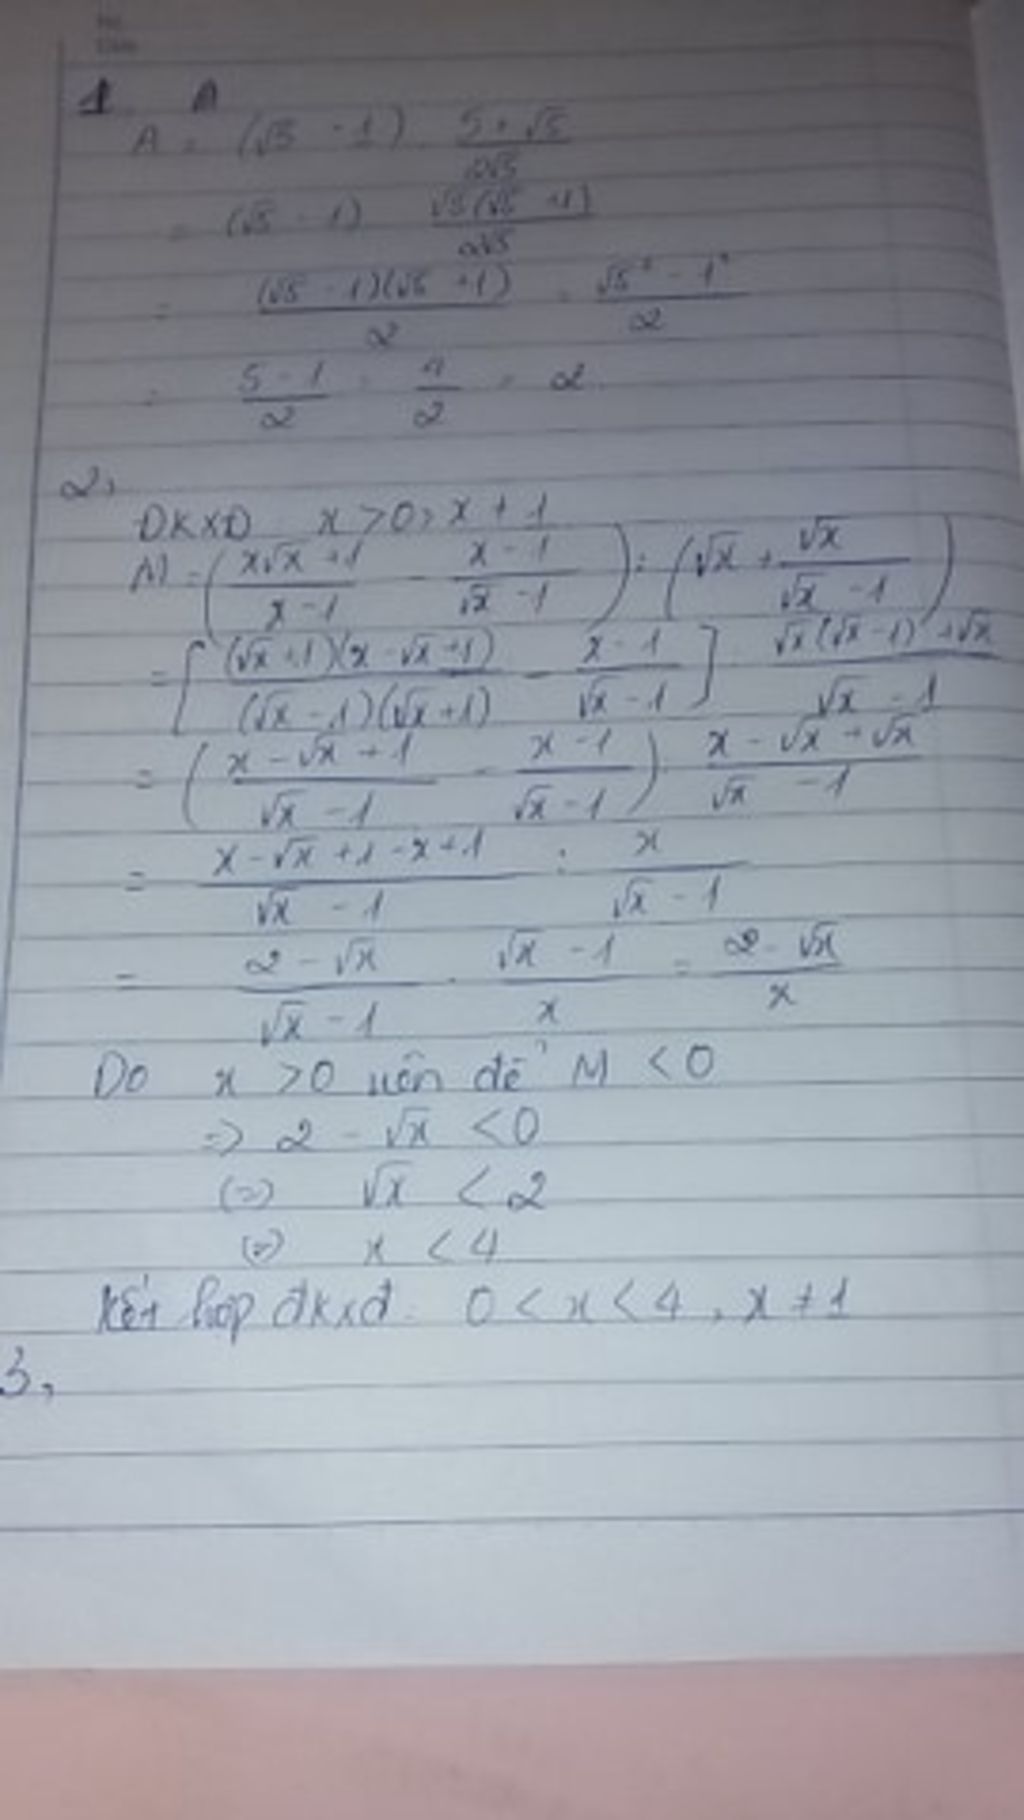 1. A
A = (√5 - 1) . (5 + √5)/(2√5)
= (√5 - 1) (√5(√5 + 1))/(2√5)
= ((√5 - 1)(√5 + 1))/2 = (√5² - 1²)/2
= (5 - 1)/2 = 4/2 = 2
2,
ĐKXĐ x > 0, x ≠ 1
M = ((x√x + 1)/(x - 1) - (x - 1)/(√x - 1)) : (√x + √x/(√x - 1))
= [((√x + 1)(x - √x + 1))/((√x - 1)(√x + 1)) - (x - 1)/(√x - 1)] : (√x(√x - 1) + √x)/(√x - 1)
= ((x - √x + 1)/(√x - 1) - (x - 1)/(√x - 1)) : (x - √x + √x)/(√x - 1)
= (x - √x + 1 - x + 1)/(√x - 1) : x/(√x - 1)
= (2 - √x)/(√x - 1) . (√x - 1)/x = (2 - √x)/x
Do x > 0 nên để M < 0
=> 2 - √x < 0
(=) √x < 2
(=) x < 4
Kết hợp đkxđ. 0 < x < 4, x ≠ 1
3,